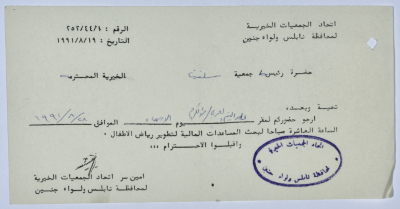 اتحاد الجمعيات الخيرية
لمحافظة نابلس ولواء جنين
الرقم : ٢٥٢/٤٤/١
التاريخ : ١٩٩١/٨/١٩
حضرة رئيس جمعية سلفيت الخيرية المحترم
تحية وبعد،
ارجو حضوركم لمقر يوم الاربعاء الموافق ١٩٩١/٨/٢٨
الساعة العاشرة صباحا لبحث المساعدات المالية لتطوير رياض الاطفال ٠
واقبلوا الاحترام ،،،
امين سر اتحاد الجمعيات الخيرية
لمحافظة نابلس ولواء جنين
اتحاد الجمعيات الخيرية
لمحافظة نابلس ولواء جنين